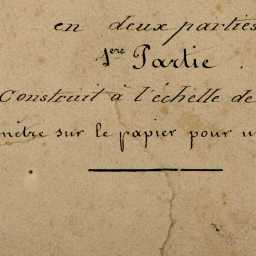 en deux parties
1ere Partie.
Construit à l'échelle de
mètre sur le papier pour u